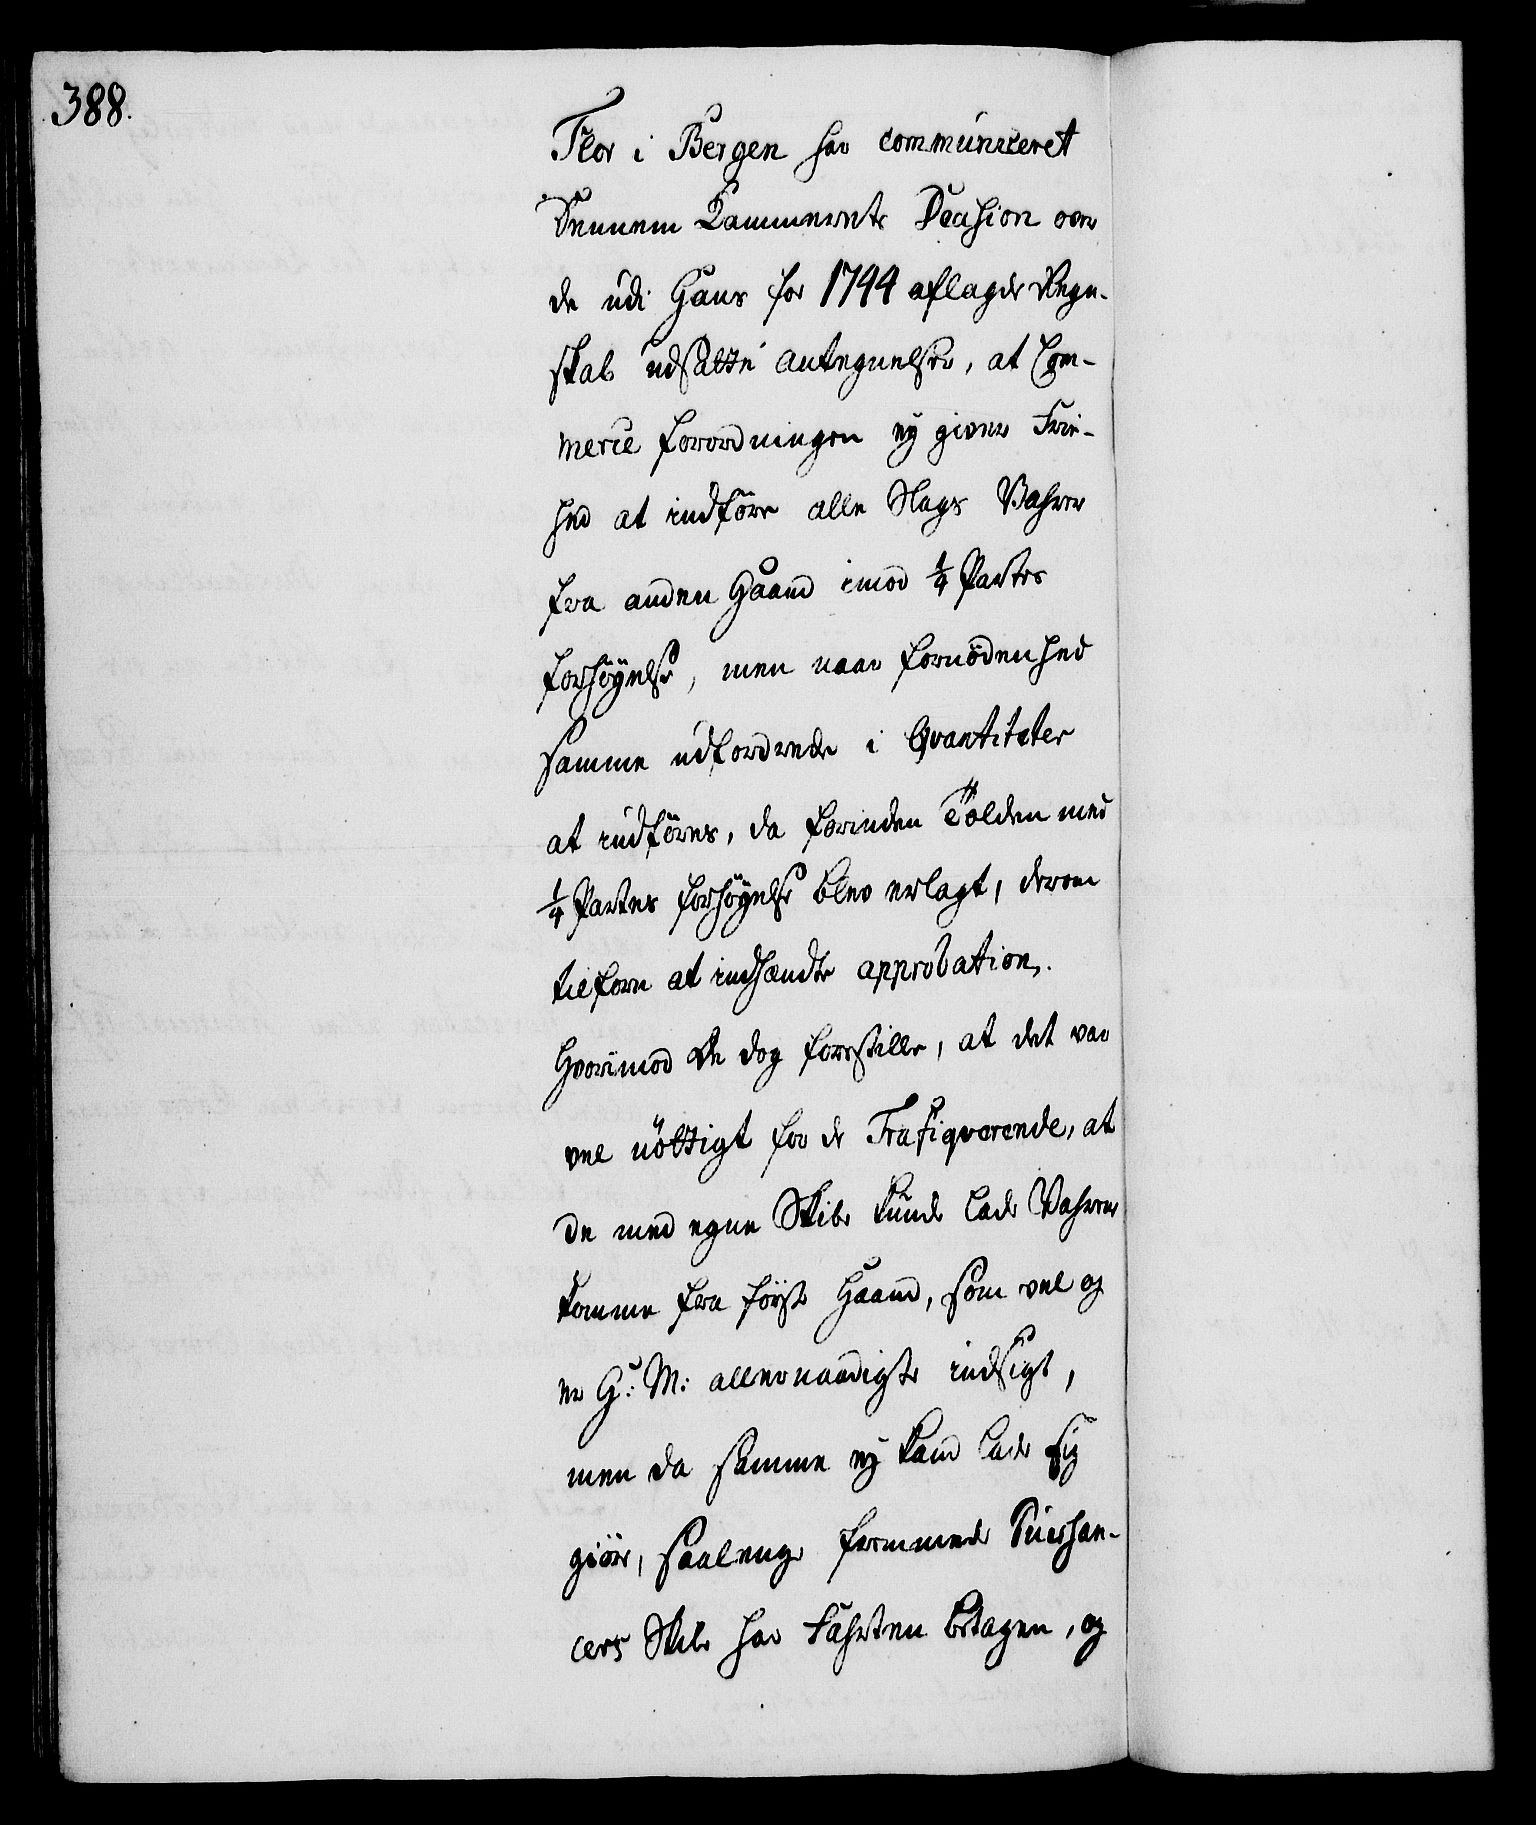 388.
Flor i Bergen har communiceret
Dennem Kammerets Decision over
de udi Hans for 1744 aflagde Regn-
skab udsatte Antegnelser, at Com-
mercie Forordningen ey giver Frie-
hed at indföre alle Slags Vahrer
fra anden Haand imod 1/4 Partes
forhöyelse, men naar fornödenhed
samme udfordrede i Qvantiteter
at indföres, da forinden Tolden med
1/4 Partes forhöyelse blev erlagt, derom
tilforn at indhændte approbation.
Hvorimod De dog forestille, at det var
vel nöttigt for de Trafiqverende, at
de med egne Skibe kunde lade Vahrer
komme fra förste Haand, som vel og
er H: M: allernaadigste indsigt,
men da samme ey kand lade sig
giöre, saalenge fremmede Puissan-
cers Skibe har Fahrten betagen, og